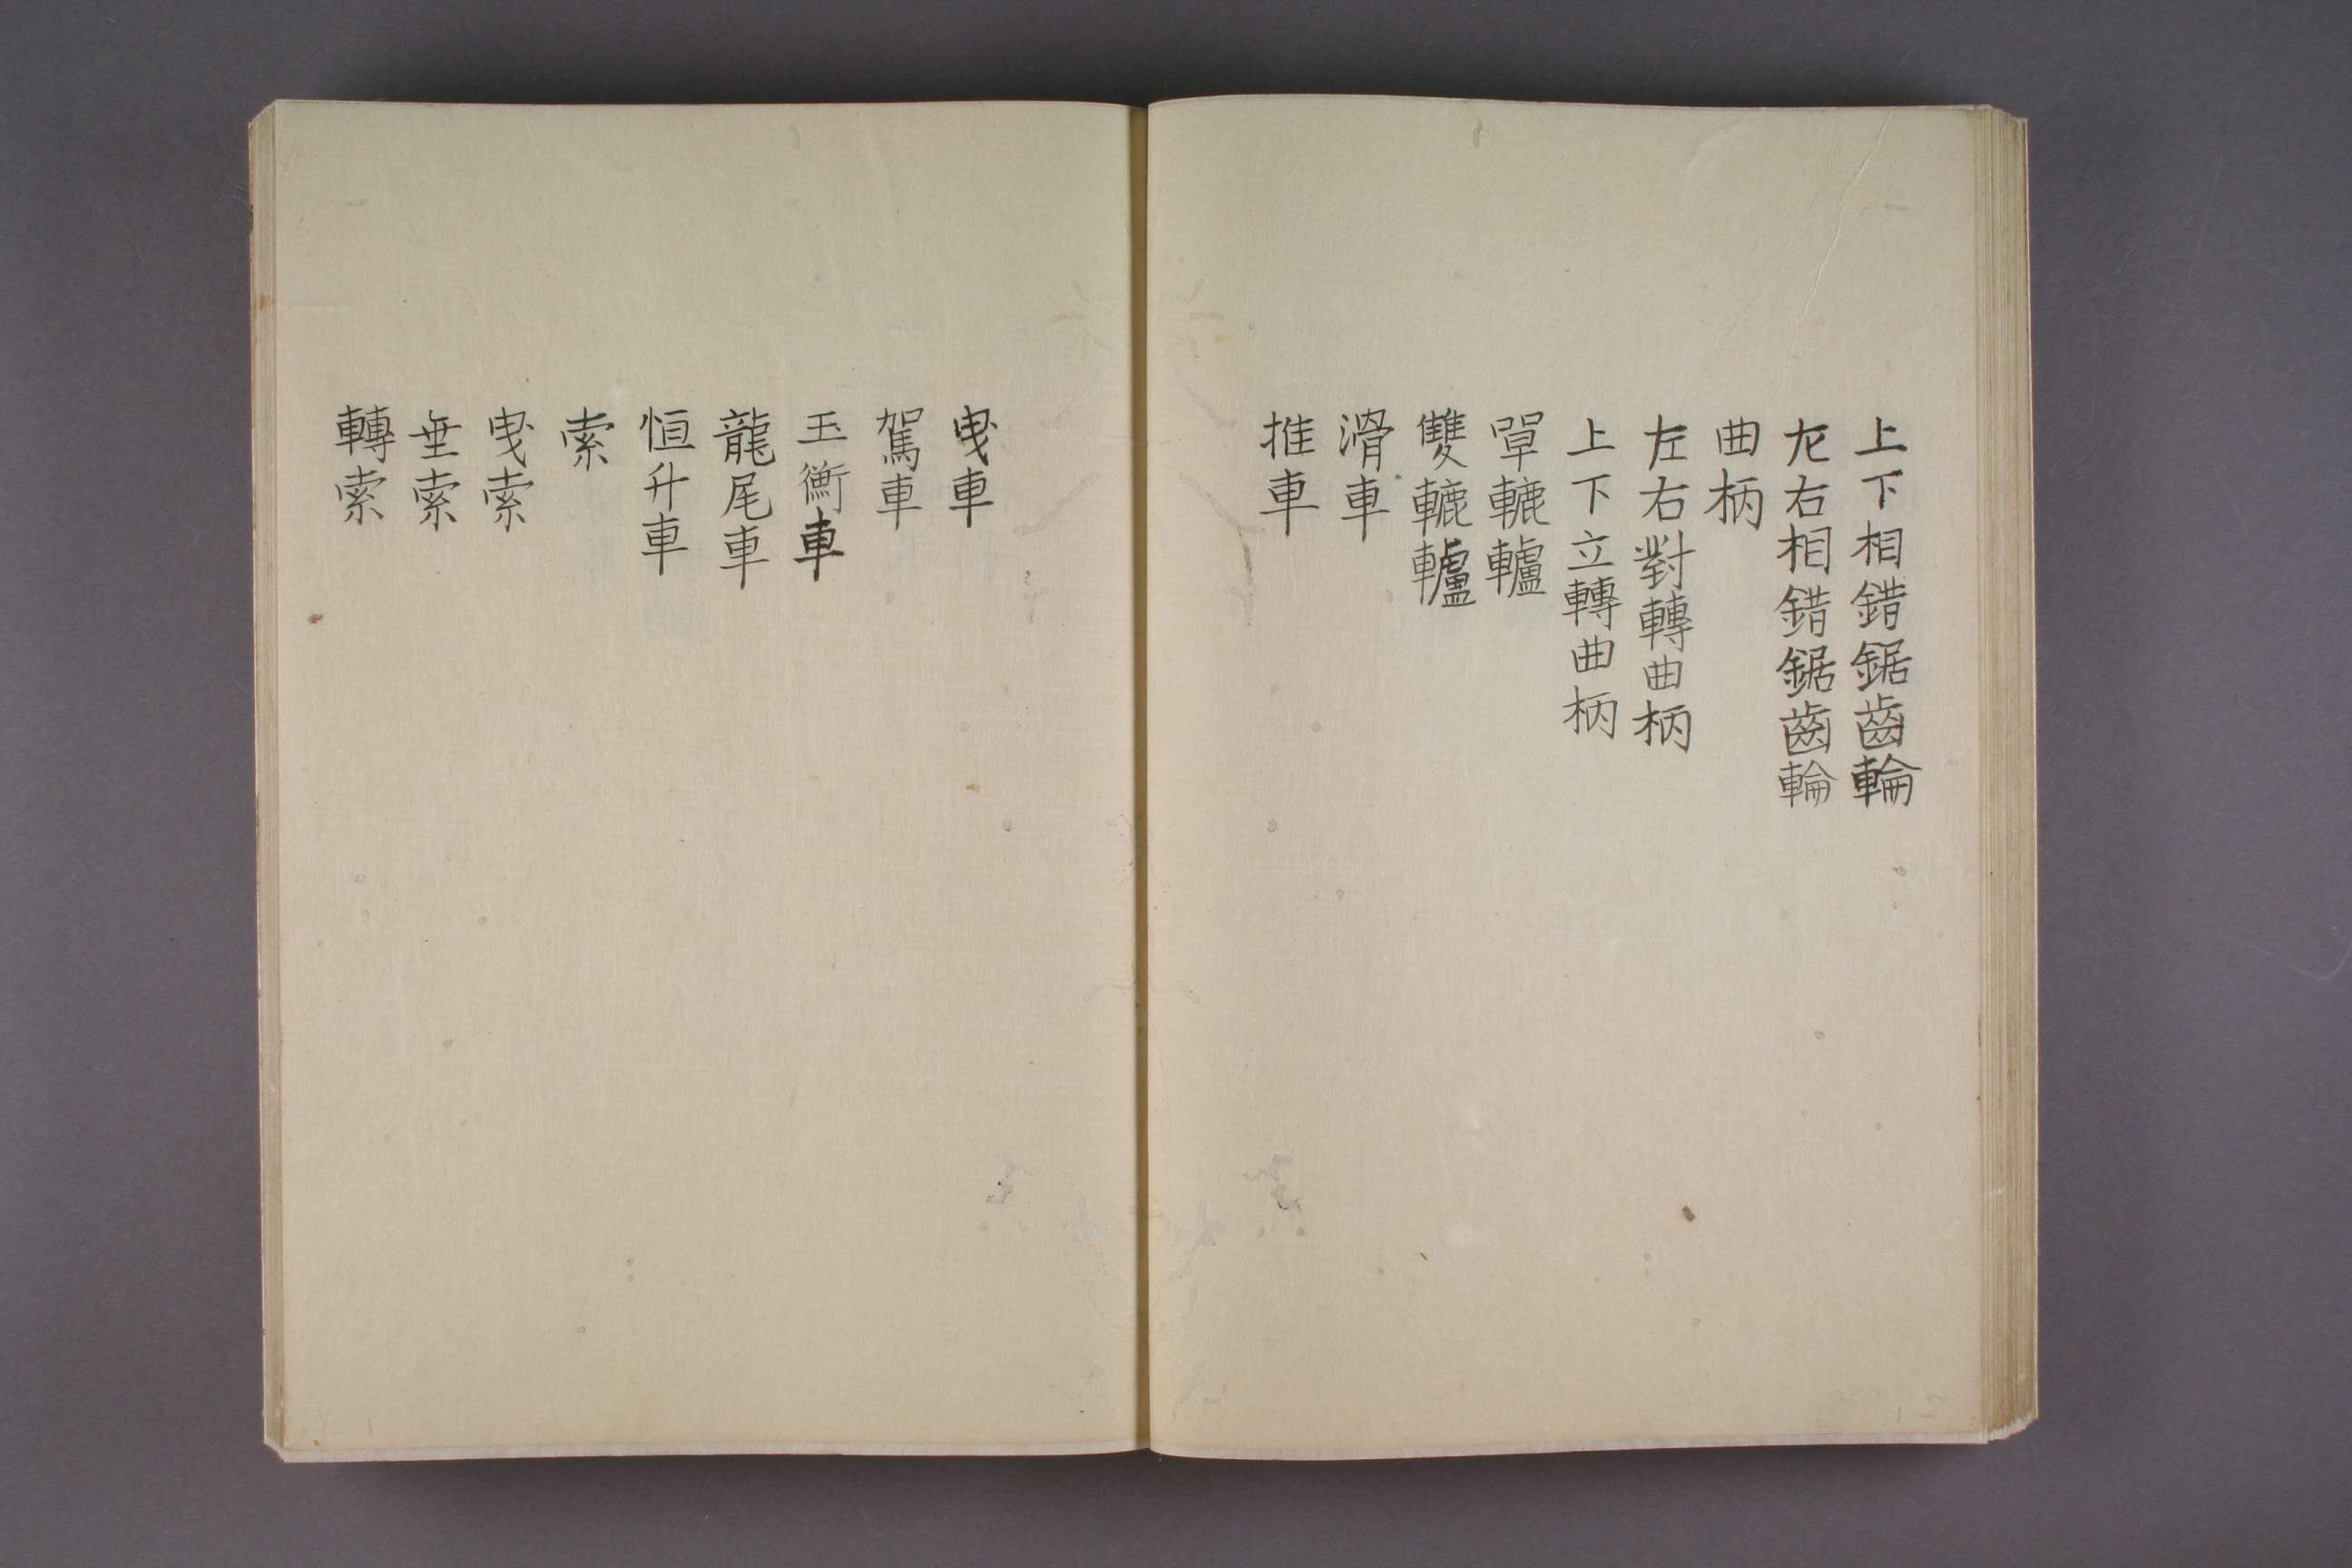 上下相錯鋸齒輪
左右相錯鋸齒輪
曲柄
左右對轉曲柄
上下立轉曲柄
單轆轤
雙轆轤
滑車
推車
曳車
駕車
玉衡車
龍尾車
恒升車
索
曳索
垂索
轉索